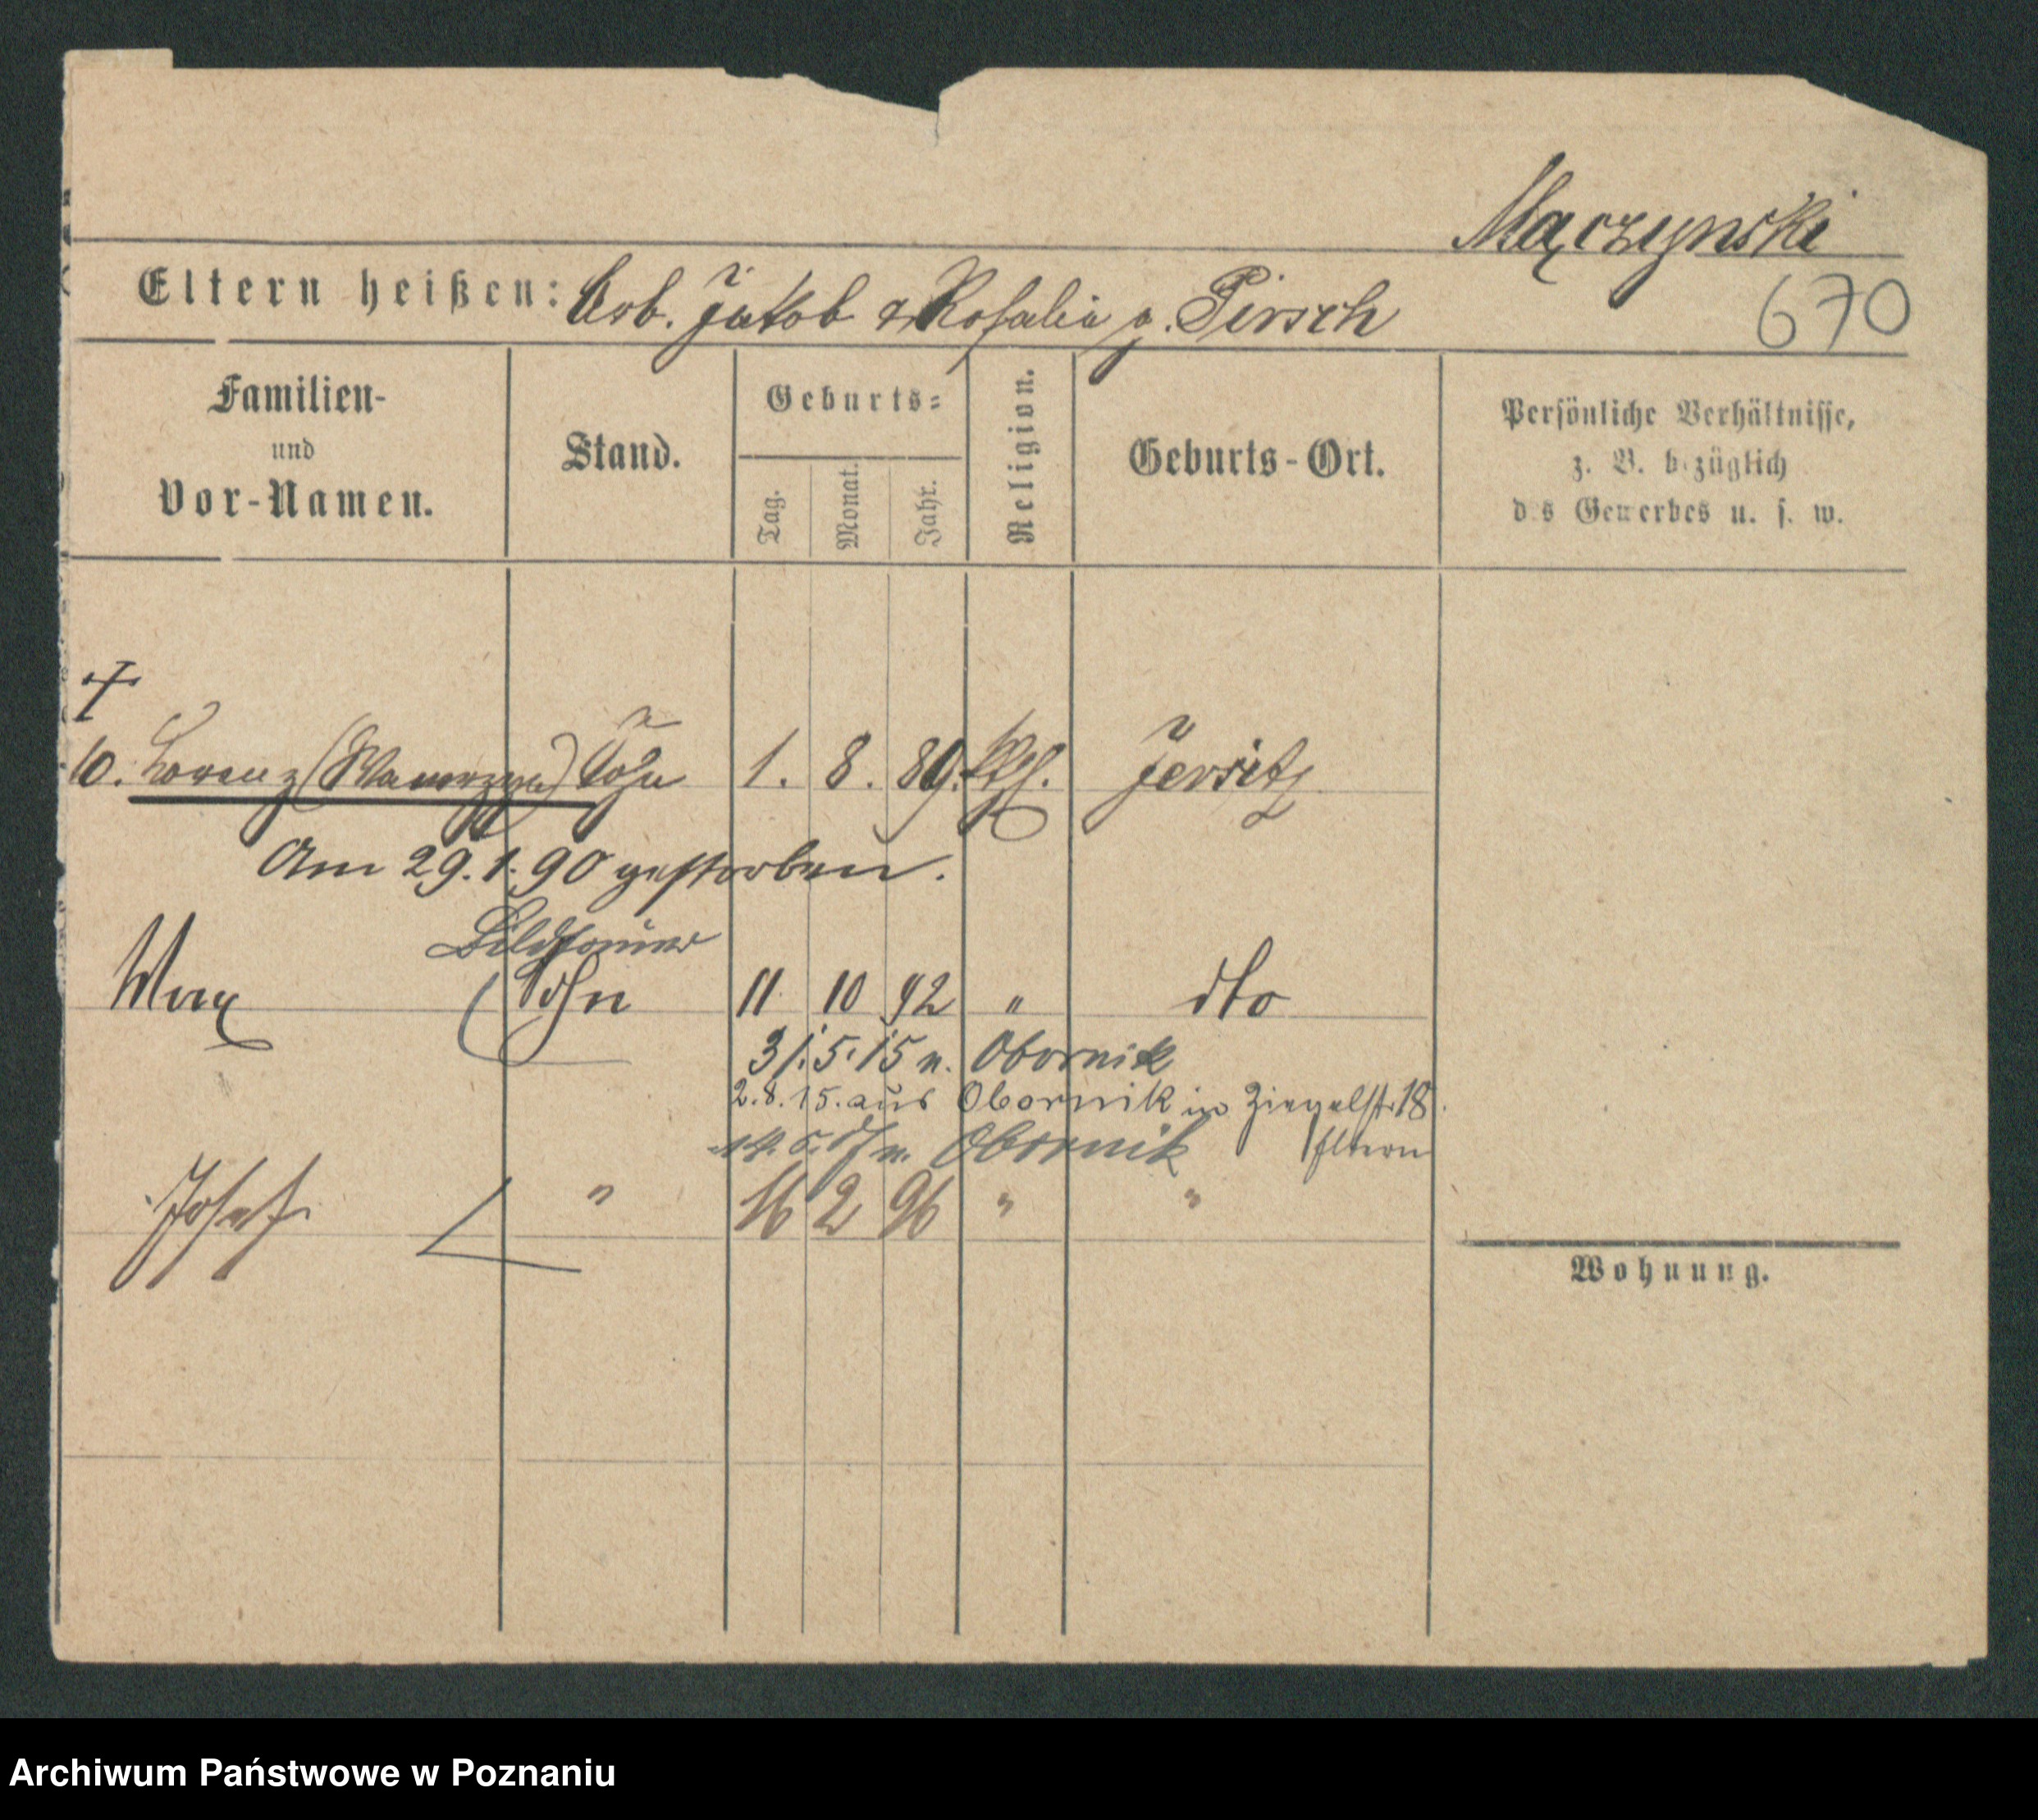 Mączynski
Eltern heißen: Arb. Jakob & Rosalia g. Pirsch
670
Familien-
und
Vor-Namen.
Stand.
Geburts-
Tag.
Monat.
Jahr.
Religion.
Geburts-Ort.
Persönliche Verhältnisse,
z. B. bezüglich
des Gewerbes u. s. w.
†
10. Lorenz (Wawrzyn) Sohn 1. 8. 89. kth. Jersitz
Am 29.1.90 gestorben.
Max Sohn 11 10 92 " dto
31.5.15 n. Obornik
2.8.15. aus Obornik in Ziegelstr. 18
n. Obornik Eltern
Josef " 16 2 96 " "
Wohnung.
Archiwum Państwowe w Poznaniu